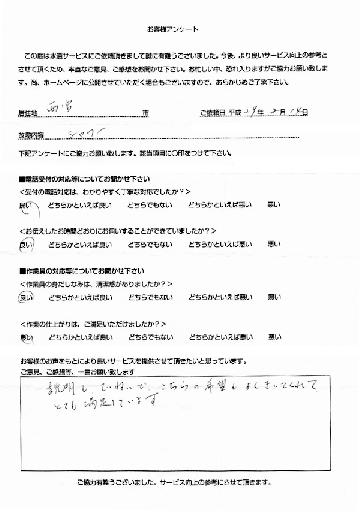 お客様アンケート
この度は水道サービスにご依頼頂きまして誠に有難うございました。今後、より良いサービス向上の参考と
させて頂くため、率直なご意見、ご感想をお聞かせ下さい。お忙しい中、恐れ入りますがご協力お願い致しま
す。尚、ホームページに公開させていただく場合もございますので、あらかじめご了承下さい。
居住地 西宮 市 ご依頼日 平成 29年 2月 日
故障内容
下記アンケートにご協力お願い致します。該当項目に○印をつけて下さい。
■電話受付の対応等についてお聞かせ下さい
<受付の電話対応は、わかりやすく丁寧な対応でしたか?>
良い どちらかといえば良い どちらでもない どちらかといえば悪い 悪い
<お伝えしたお時間どおりにお伺いすることができていましたか?>
良い どちらかといえば良い どちらでもない どちらかといえば悪い 悪い
■作業員の対応等についてお聞かせ下さい
<作業員の身だしなみは、清潔感がありましたか?>
良い どちらかといえば良い どちらでもない どちらかといえば悪い 悪い
<作業の仕上がりは、ご満足いただけましたか?>
良い どちらかといえば良い どちらでもない どちらかといえば悪い 悪い
お客様のお声をもとにより良いサービスを提供させて頂きたいと思っています。
ご意見、ご感想等、一言お願い致します
説明も ていねいで、こちらの希望もよくきいてくれて
とても満足しています
ご協力有難うございました。サービス向上の参考にさせて頂きます。